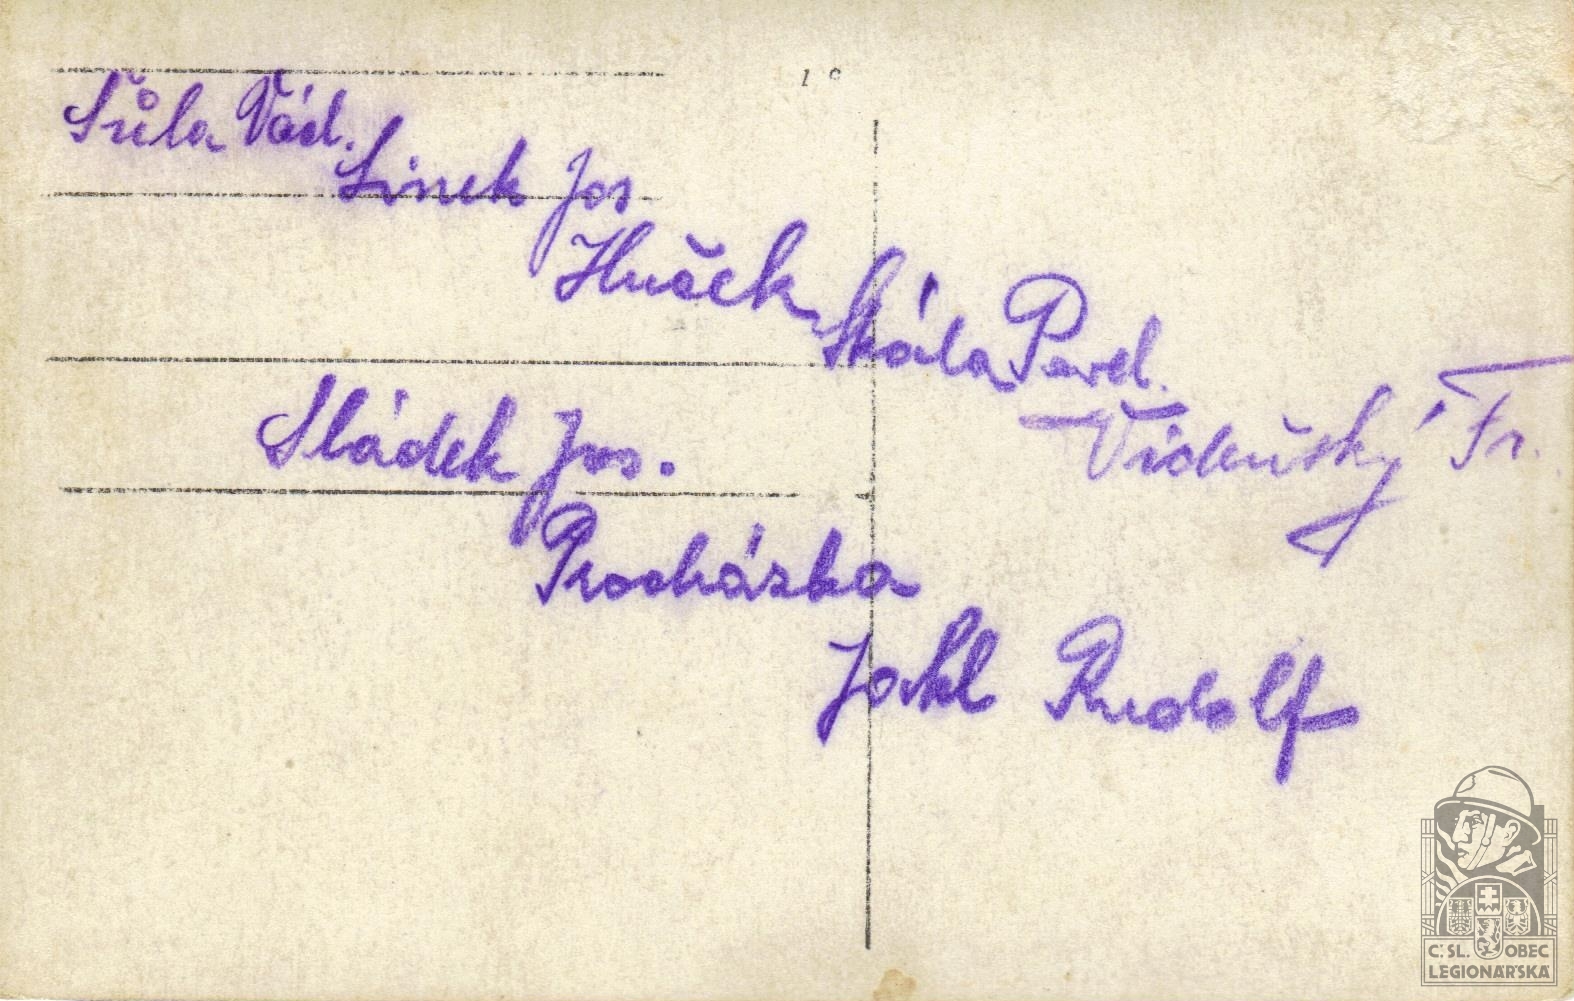 Šůla Vád.
Linek Jos
Hnaček
Skála Pavel.
Vidunský Fr.
Sládek Jos.
Procházka
Jokl Rudolf
1 °
Č. SL. OBEC
LEGIONÁŘSKÁ